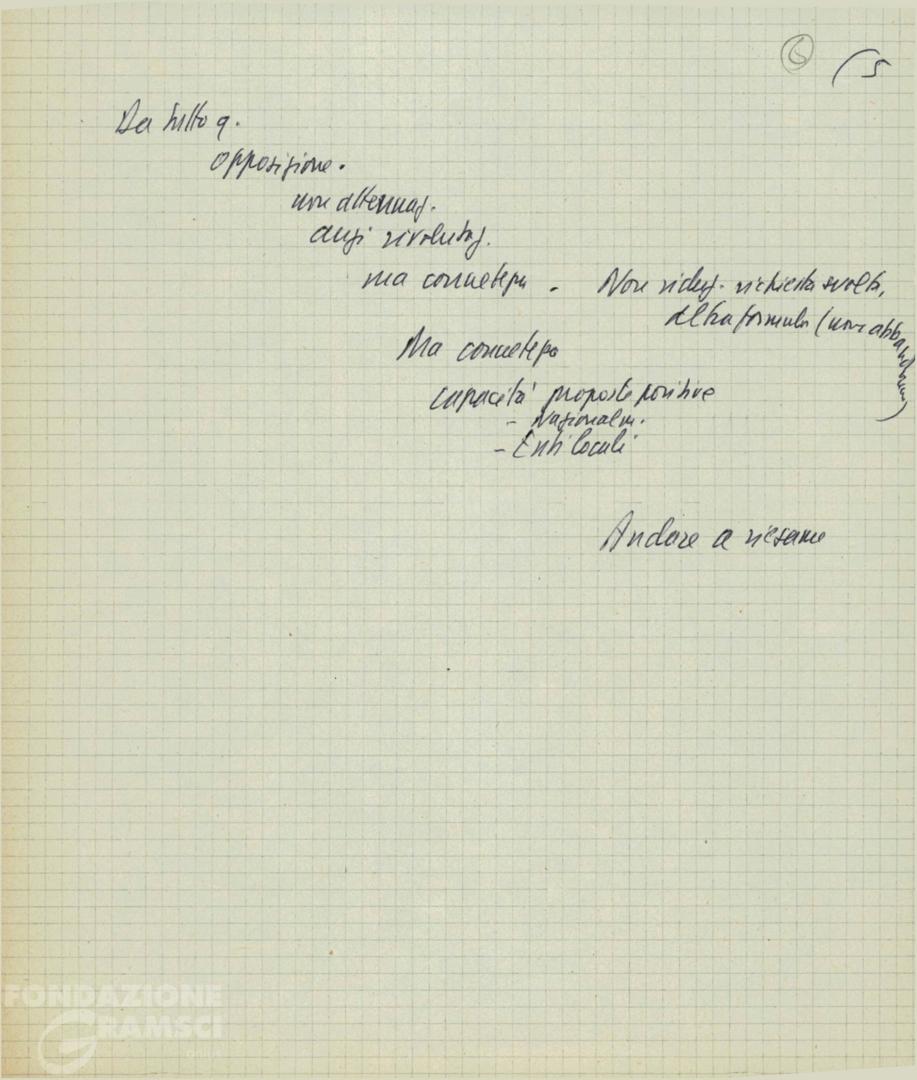 6 (5
Da tutto q.
opposizione.
non attenuaz.
anzi rivolutaz.
ma concretezza. Non riduz. richiesta svolta,
altra formula (non abbandono)
Ma concretezza
capacità proposte positive
- Nazionalm.
- Enti locali
Andare a riesame
FONDAZIONE
GRAMSCI